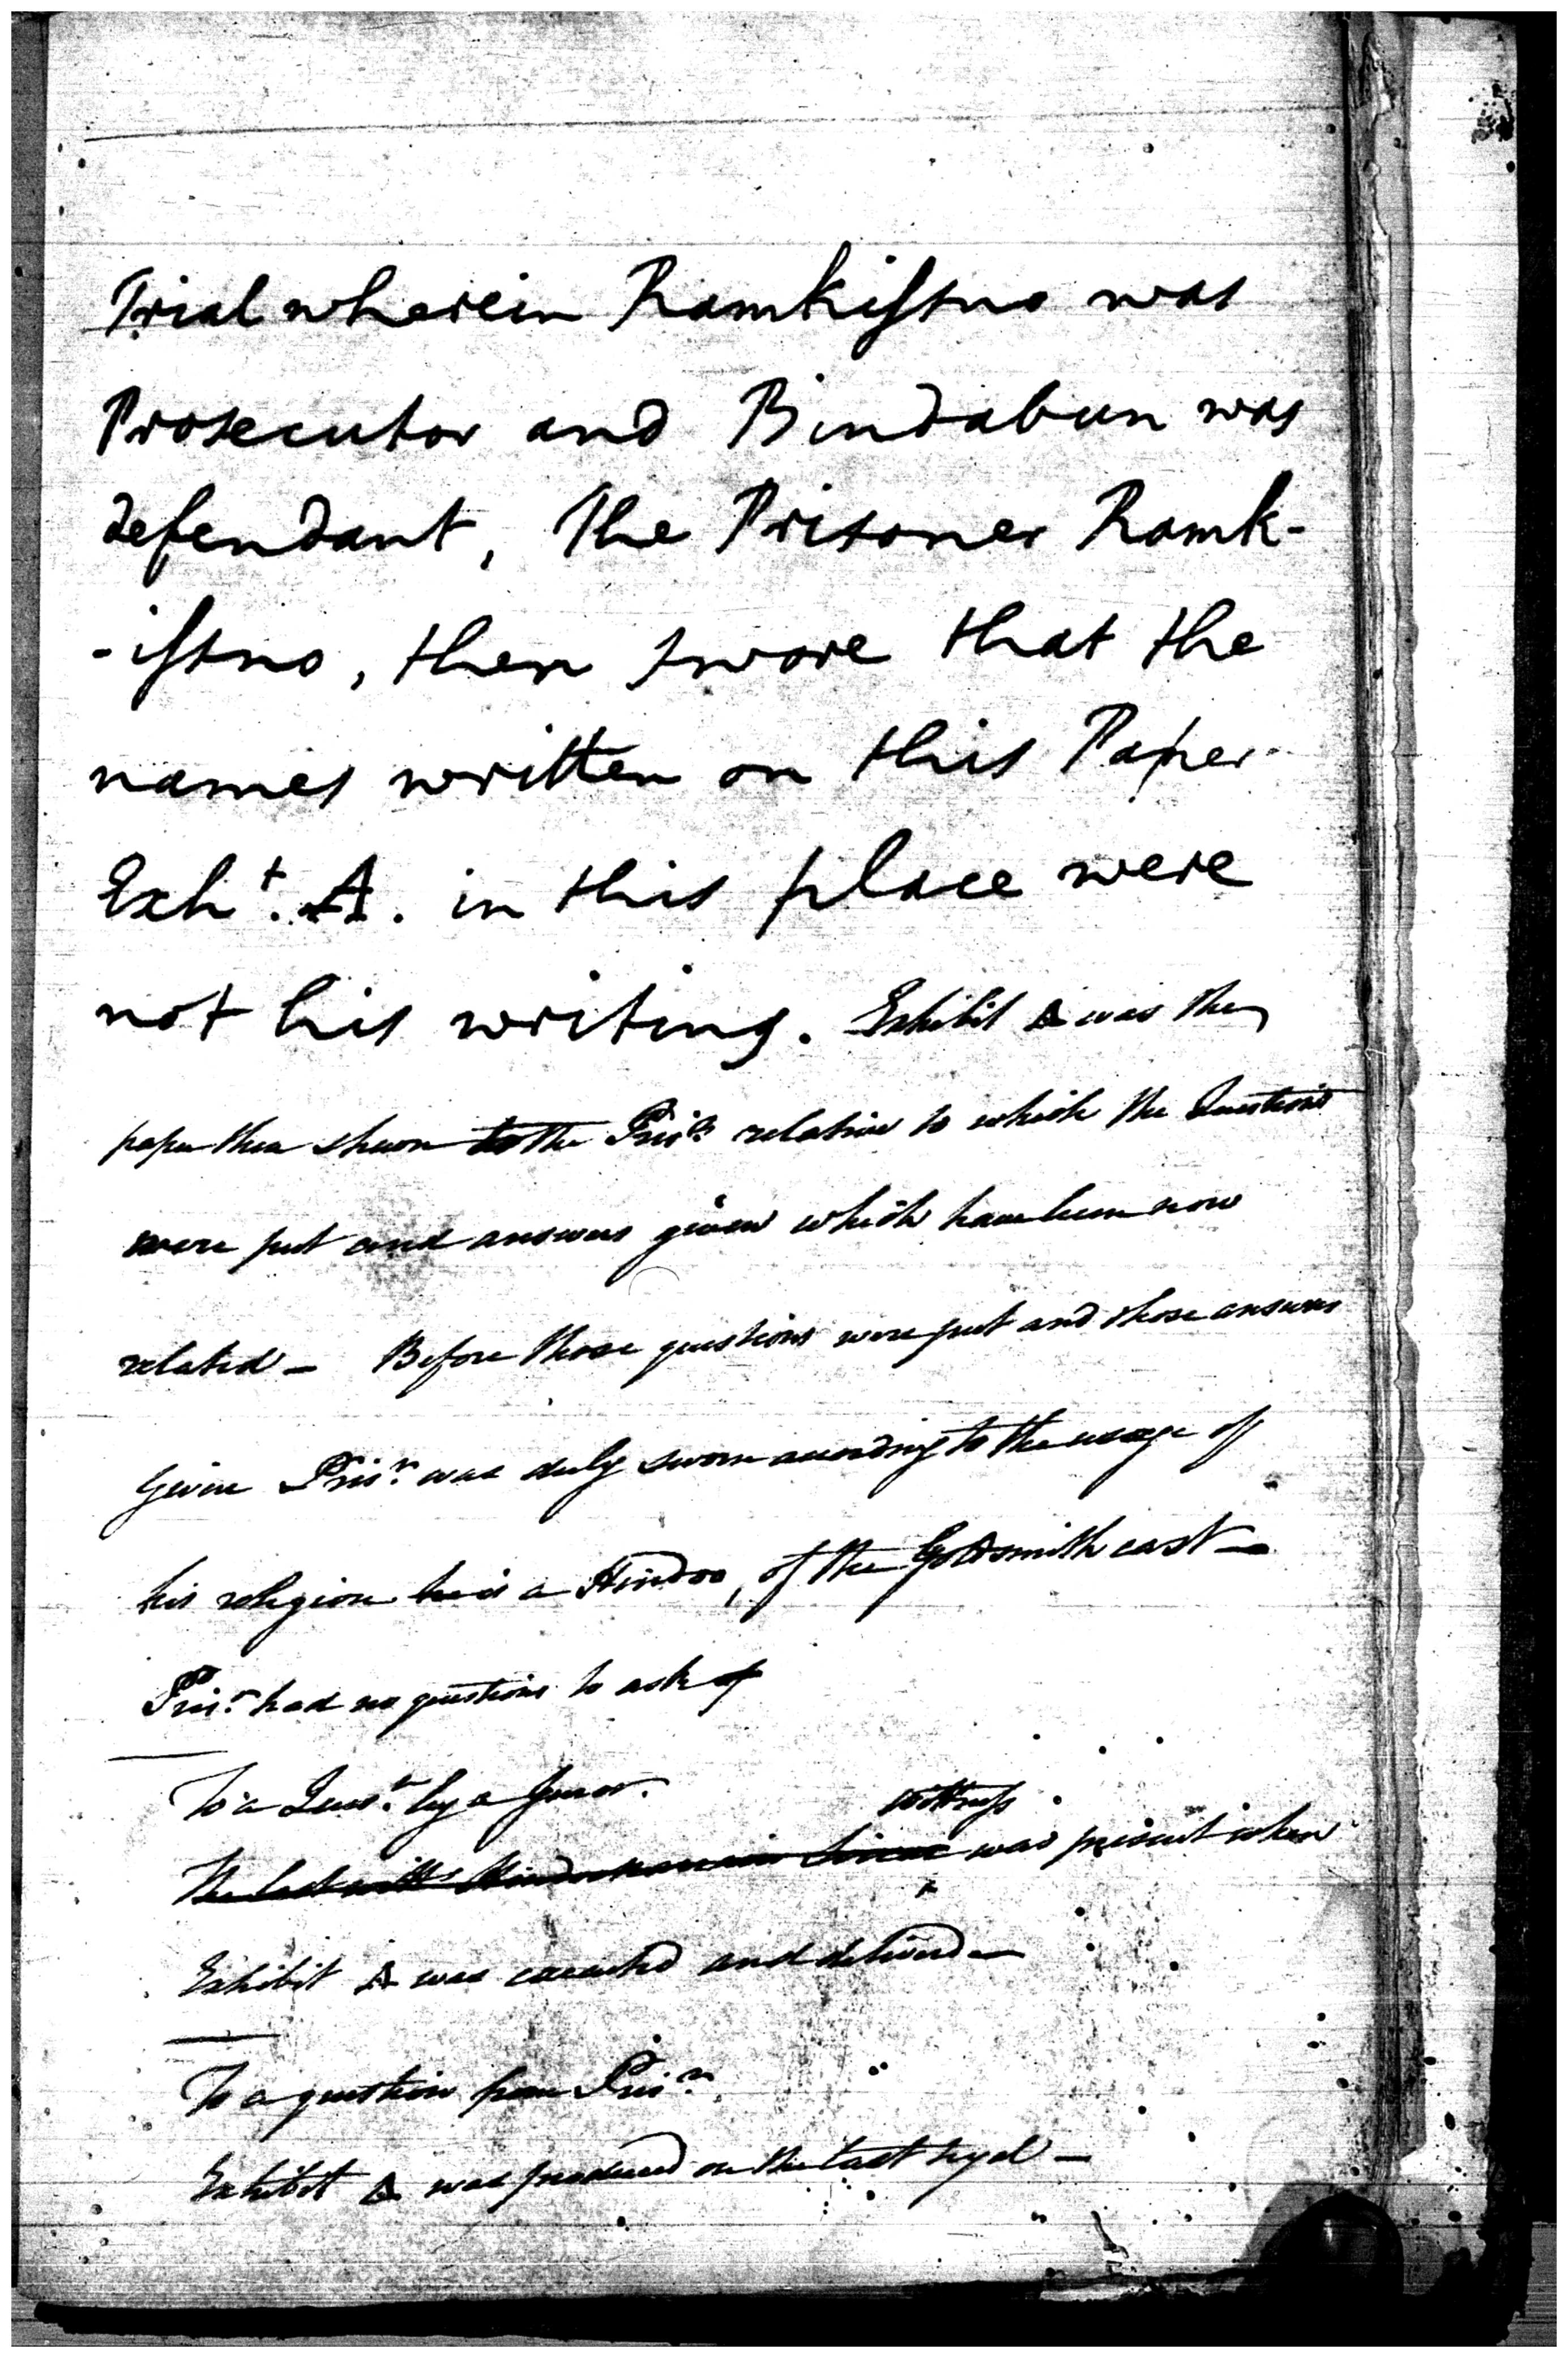 Trial wherein Ramkissno was
Prosecutor and Bindabun was
defendant, The Prisoner Ramk-
-issno, then swore that the
names written on this Paper
Exht. A. in this place were
not his writing. Exhibit A was the
paper then shewn to the Prisr. relative to which the Questions
were put and answers given which have been now
related — Before those questions were put and those answers
given Prisr. was duly sworn according to the usage of
his religion he is a Hindoo, of the Goldsmith cast —
Prisr. had no questions to ask of
To a Quesn. by a Juror.
witness
The last was present when
Exhibit A was executed and delivered —
To a question from Prisr.
Exhibit A was produced on the last tryal —